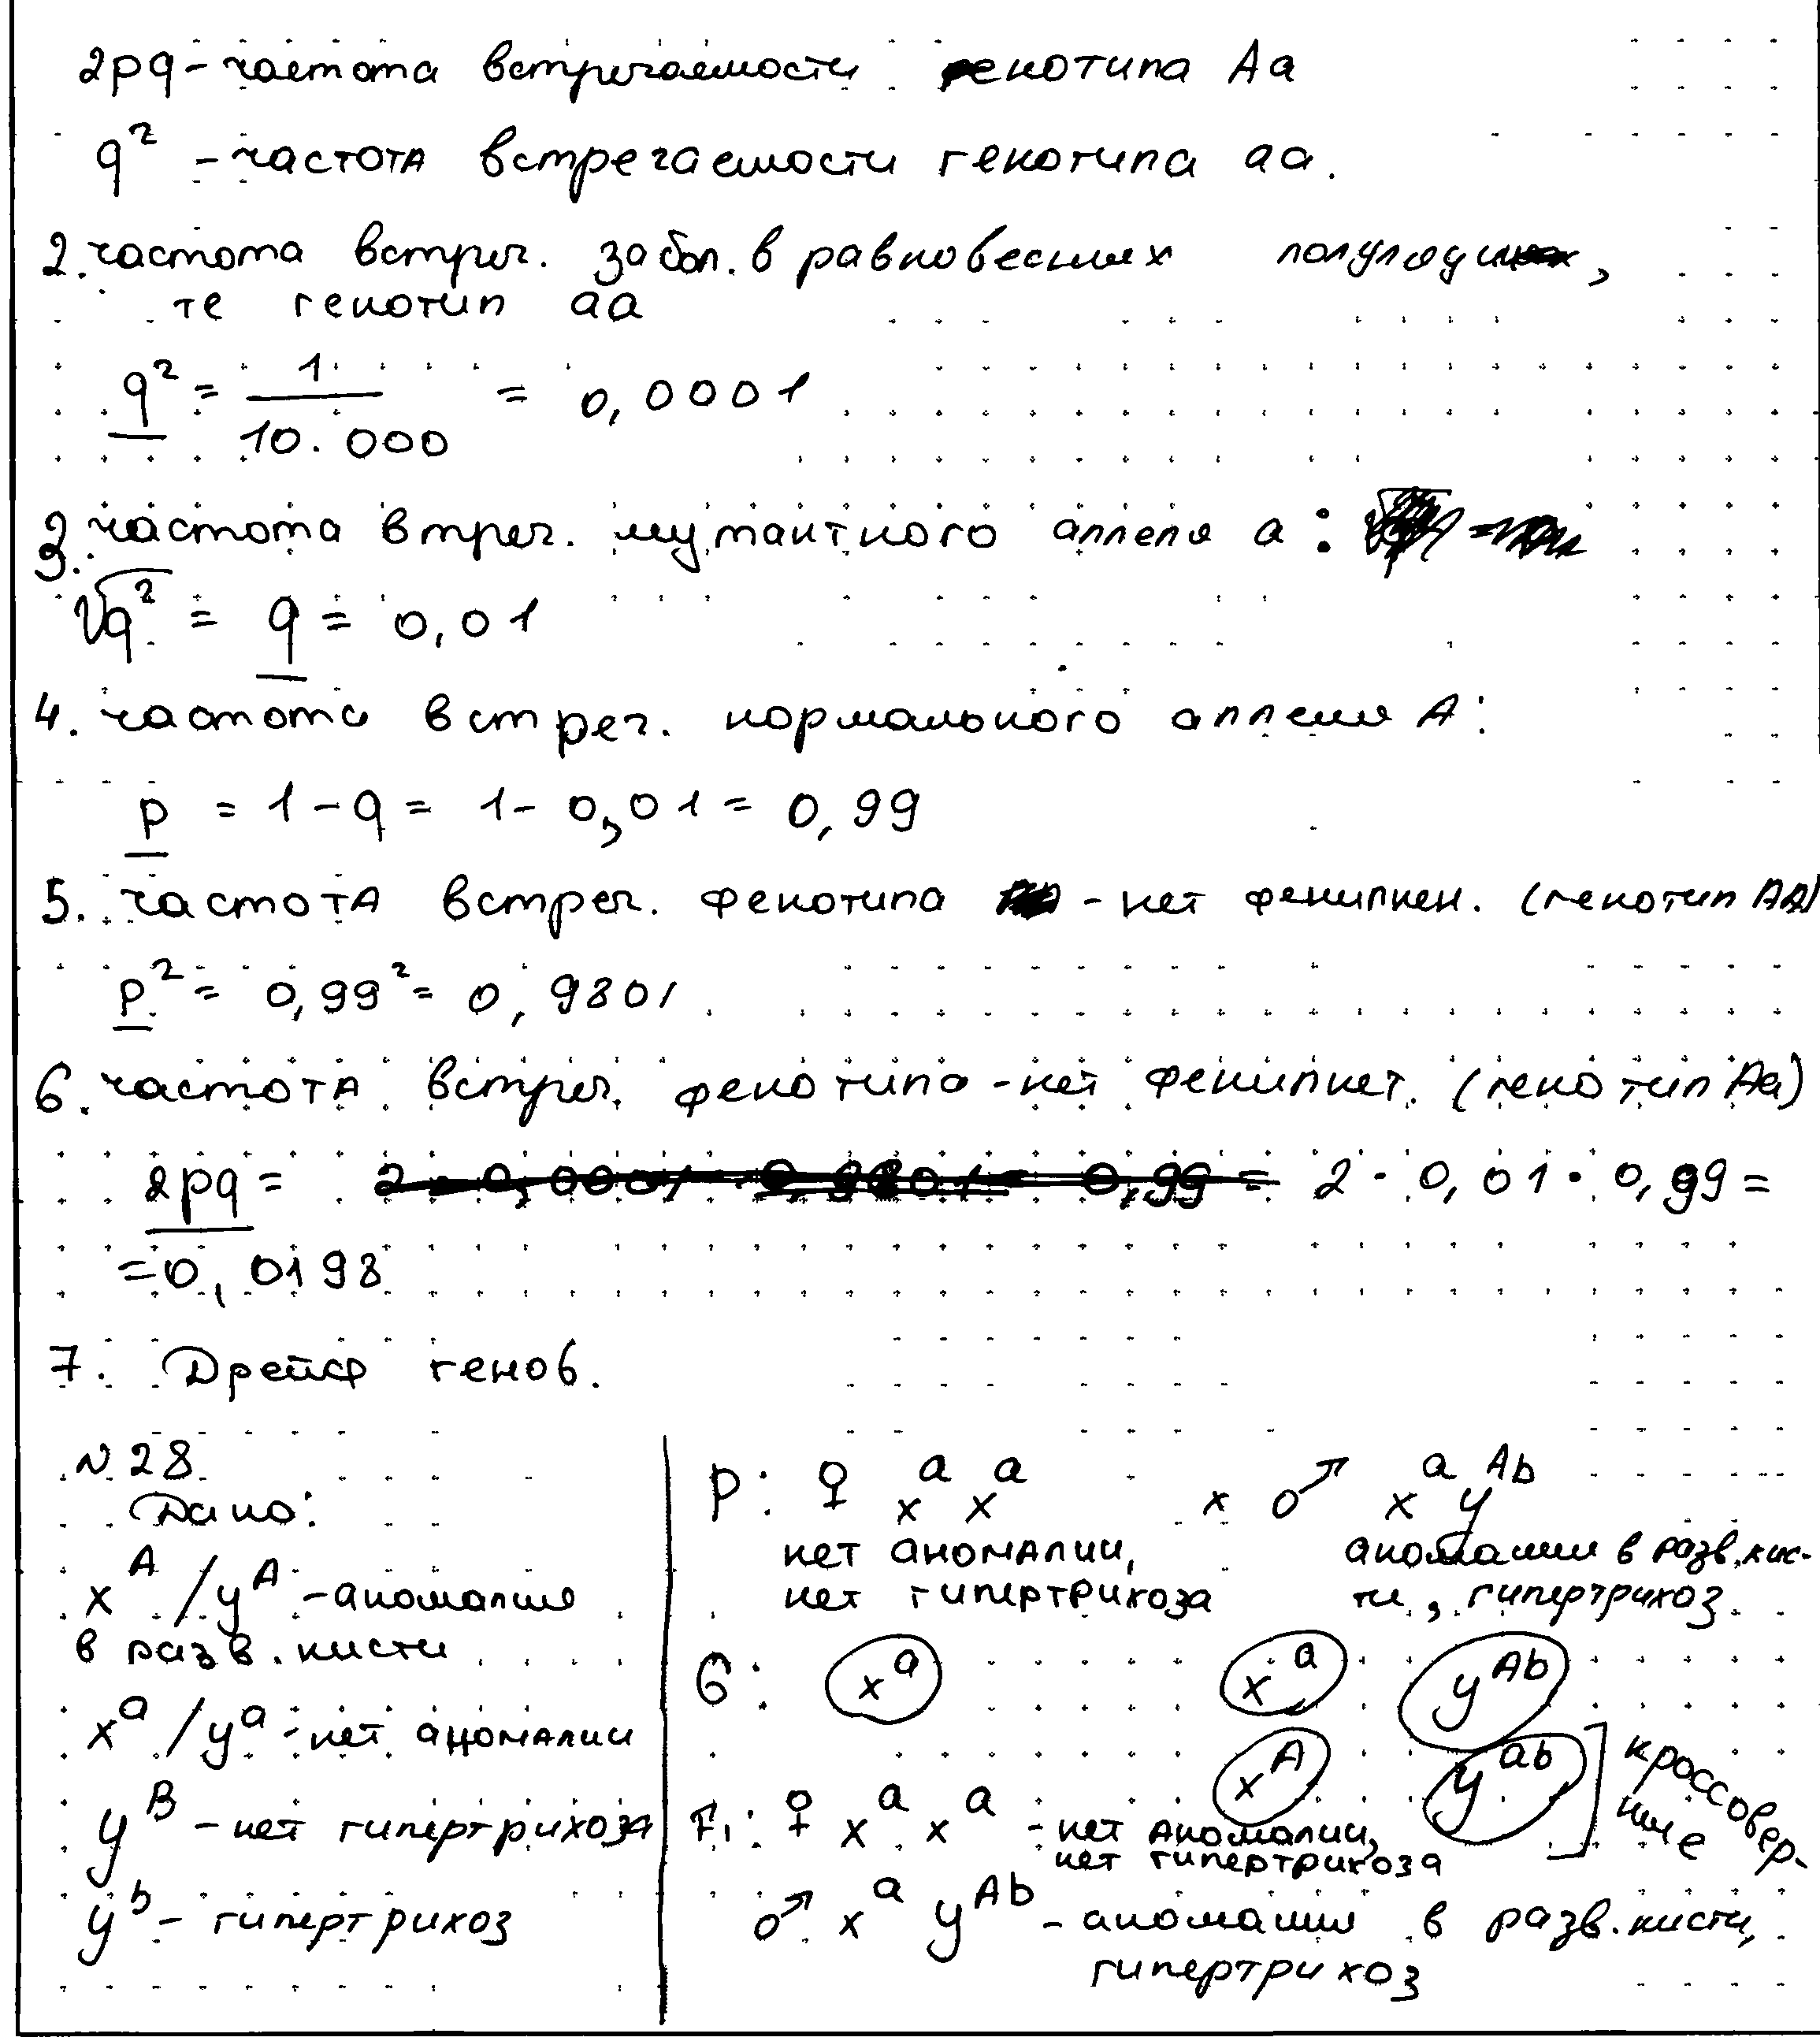 2pq - частота встречаемости генотипа Aa
q² - частота встречаемости генотипа aa.
2. частота встреч. забол. в равновесных популяциях,
те генотип aa
q² = 1/10.000 = 0,0001
3. частота втреч. мутантного аллеля a:
√q² = q = 0,01
4. частота встреч. нормального аллеля A:
p = 1 - q = 1 - 0,01 = 0,99
5. частота встреч. фенотипа - нет фенилкен. (генотип AA)
p² = 0,99² = 0,9801
6. частота встреч. фенотипа - нет фенилкет. (генотип Aa)
2pq = 2 · 0,01 · 0,99 =
= 0,0198
7. Дрейф генов.
N28
Дано:
x^A / y^A - аномалия
в разв. кисти
x^a / y^a - нет аномалии
y^B - нет гипертрихоза
y^b - гипертрихоз
P: ♀ x^a x^a x ♂ x^a y^Ab
нет аномалии, аномалии в разв. кис-
нет гипертрихоза ти, гипертрихоз
G: x^a x^a y^Ab
x^A y^ab ] кроссовер-
ные
F₁: ♀ x^a x^a - нет аномалии,
нет гипертрихоза
♂ x^a y^Ab - аномалии в разв. кисти,
гипертрихоз